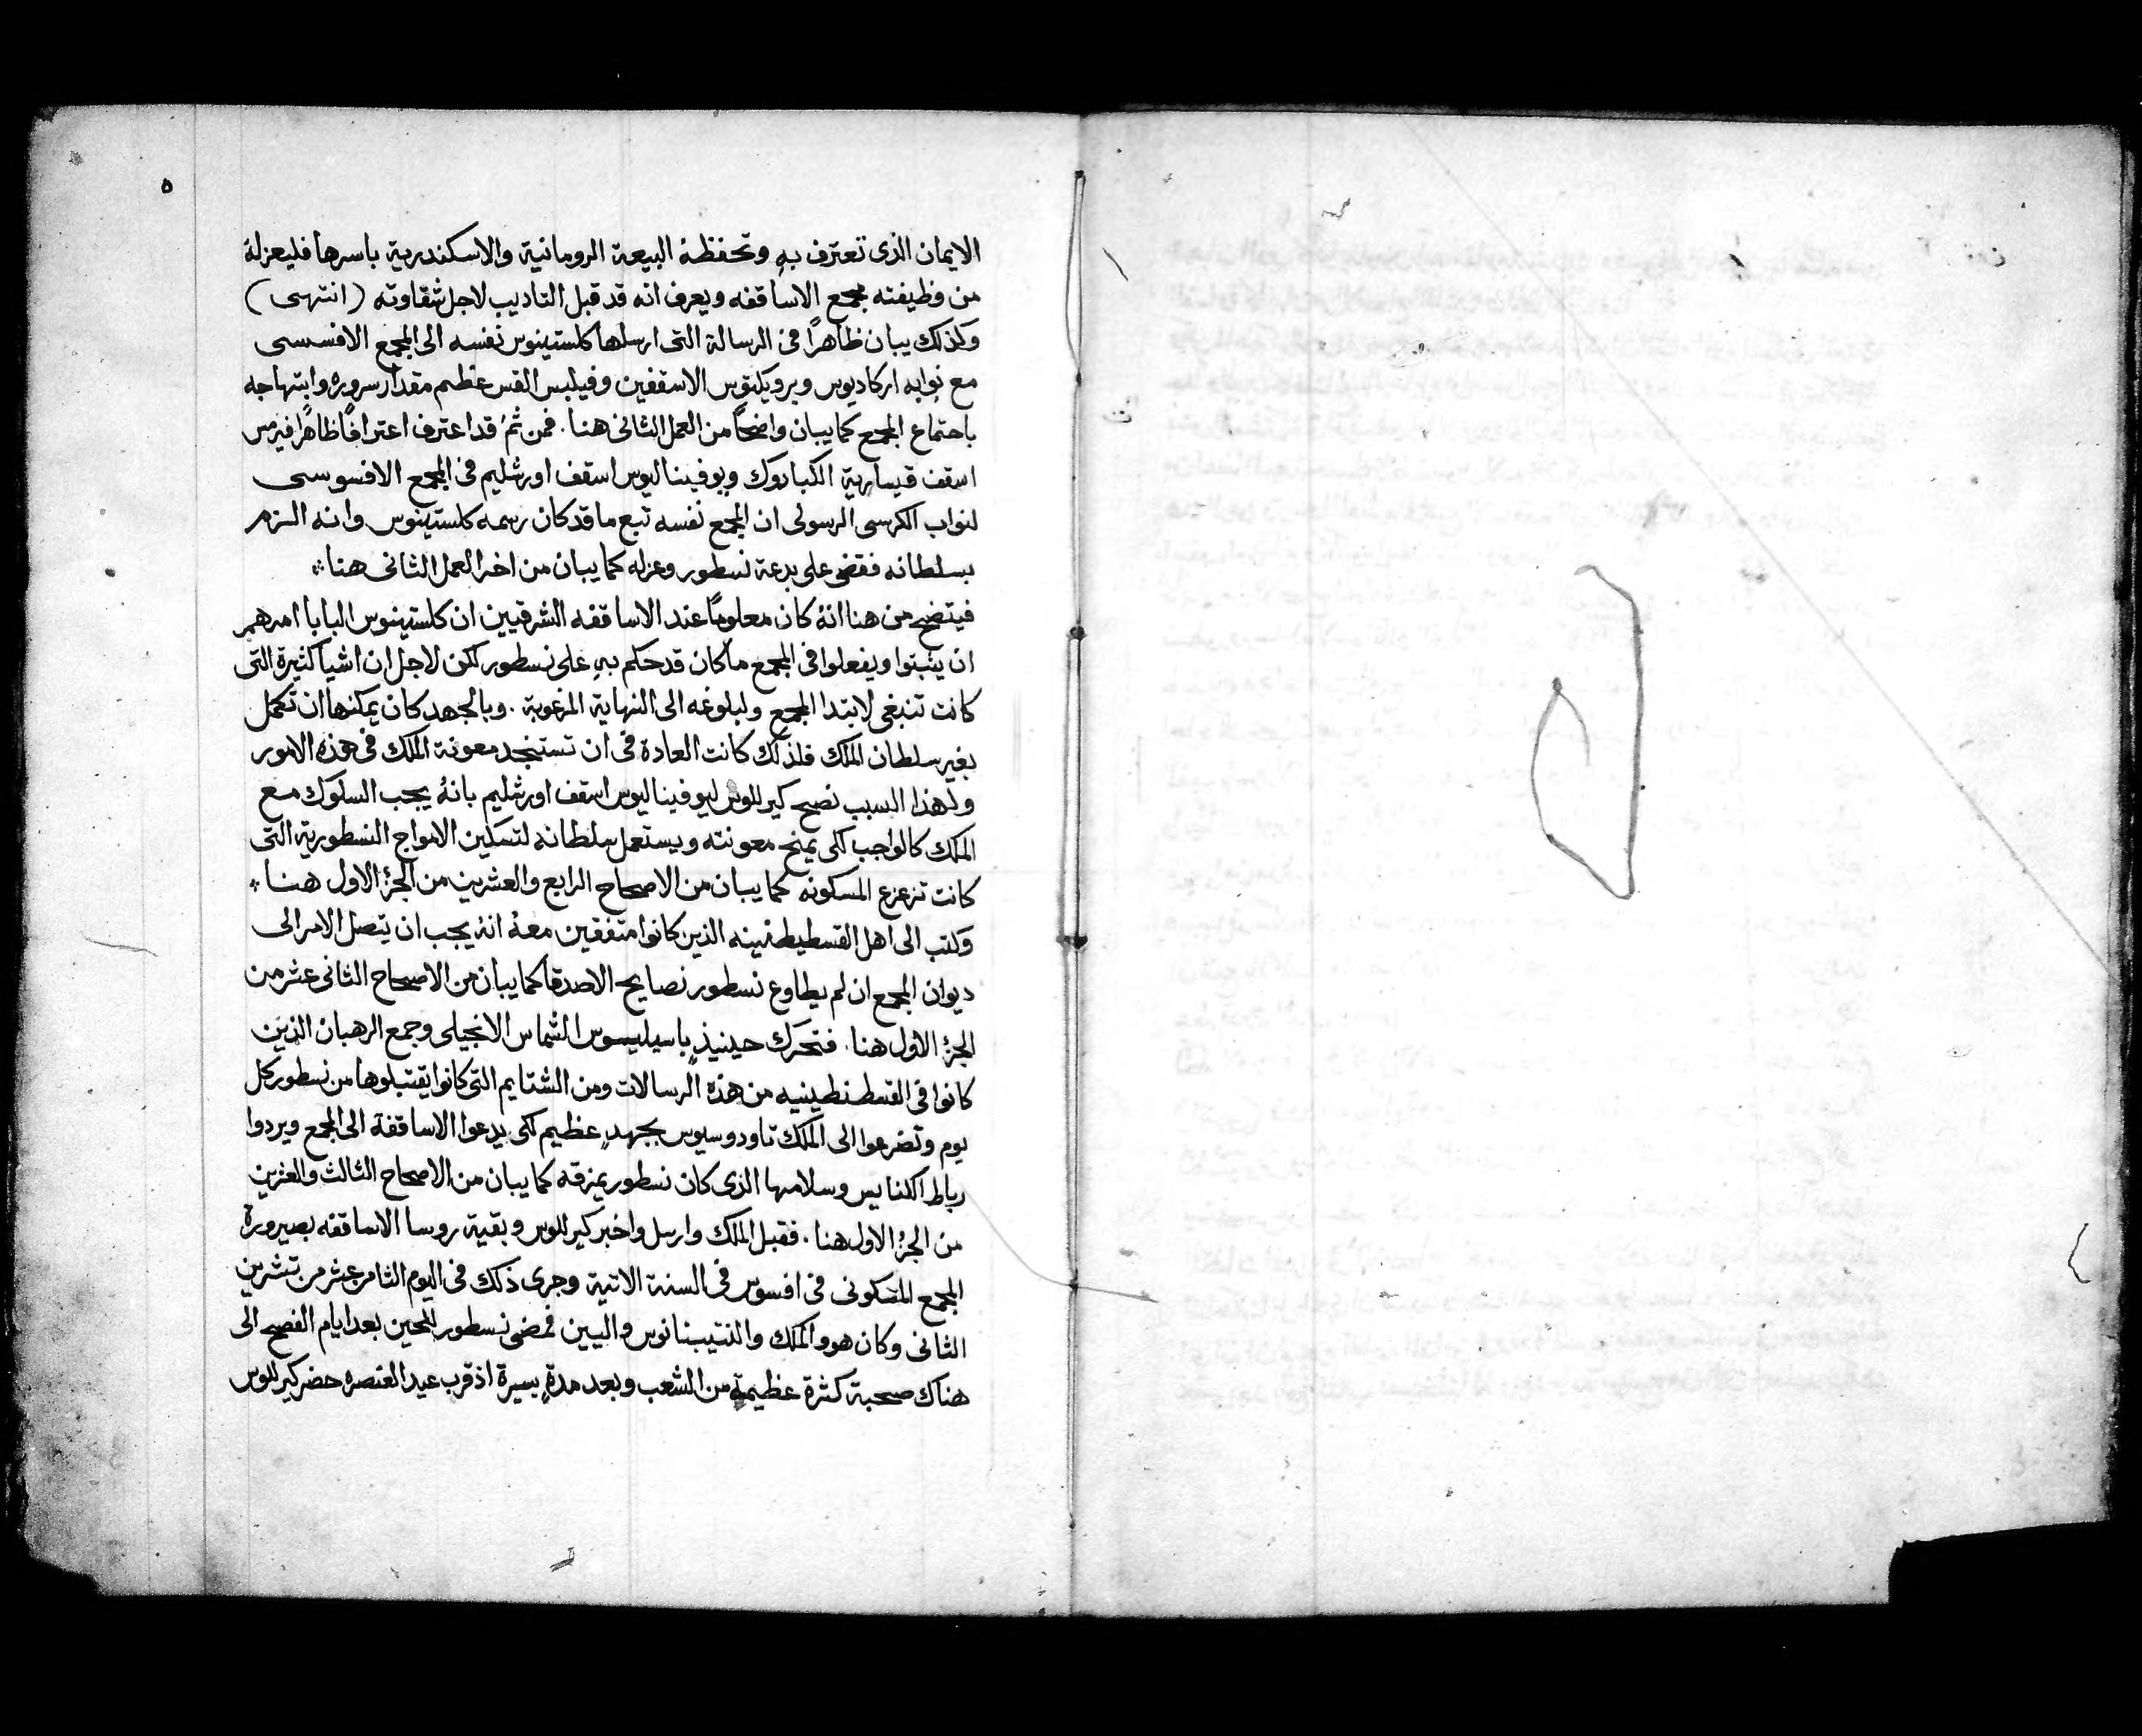 ٥
الايمان الذى تعترف بهِ وتحفظهُ البيعة الرومانية والاسكندرية باسرها فليعزلهُ
من وظيفته مجمع الاساقفه ويعرف انه قد قبل التاديب لاجل شقاوته (انتهى)
وكذلك يبان ظاهرًا فى الرسالة التى ارسلها كلستينوس نفسه الى المجمع الافسسى
مع نوابه اركاديوس وبرويكتوس الاسقفين وفيلبس القس عظم مقدار سروره وابتهاجه
باجتماع المجمع كما يبان واضحًا من العمل الثانى هنا. فمن ثمُ قد اعترف اعترافًا ظاهرًا فيرمس
اسقف قيسارية الكبادوك ويوفيناليوس اسقف اورشليم فى المجمع الافسوسى
لنواب الكرسى الرسولى ان المجمع نفسه تبع ما قد كان رسمه كلستينوس وانه التزم
بسلطانه فقضى على بدعة نسطور وعزله كما يبان من اخر العمل الثانى هنا
فيتضح من هنا انهُ كان معلومًا عند الاساقفه الشرقيين ان كلستينوس البابا امرهم
ان يثبتوا ويفعلوا فى المجمع ما كان قد حكم بهِ على نسطور لكن لاجل ان اشيا كثيرة التى
كانت تنبغى لابتدا المجمع ولبلوغه الى النهاية المرغوبة. وبالجهد كان يمكنها ان تكمل
بغير سلطان الملك فلذلك كانت العادة فى ان تستنجد معونة الملك فى هذه الامور
ولهذا السبب نصح كيرللوس ليوفيناليوس اسقف اورشليم بانهُ يجب السلوك مع
الملك كالواجب لكى يمنح معونته ويستعمل سلطانه لتسكين الامواج النسطورية التى
كانت تزعزع المسكونه كما يبان من الاصحاح الرابع والعشرين من الجزُ الاول هنا
وكتب الى اهل القسطيطنينه الذين كانوا متفقين معهُ انهُ يجب ان يتصل الامر الى
ديوان المجمع ان لم يطاوع نسطور نصايح الاصدقا كما يبان من الاصحاح الثانى عشر من
الجزُ الاول هنا. فتحرك حينيذٍ باسيليسوس الشماس الانجيلى وجمع الرهبان الذين
كانوا فى القسطنطينيه من هذه الرسالات ومن الشتايم التى كانوا يقتبلوها من نسطور كل
يوم وتضرعوا الى الملك تاودوسيوس بجهدٍ عظيم لكى يدعوا الاساقفة الى المجمع ويردوا
رباط الكنايس وسلامها الذى كان نسطور يمزقه كما يبان من الاصحاح الثالث والعشرين
من الجزُ الاول هنا. فقبل الملك وارسل واخبر كيرللوس وبقية روسا الاساقفه بصيرورة
المجمع المسكونى فى افسوس فى السنة الاتية وجرى ذلك فى اليوم الثامن عشر من تشرين
الثانى وكان هو والملك والنتيبنانوس واليين فمضى نسطور للحين بعد ايام الفصح الى
هناك صحبة كثرة عظيمة من الشعب وبعد مدةٍ يسيرة اذ قرب عيد العنصره حضر كيرللوس